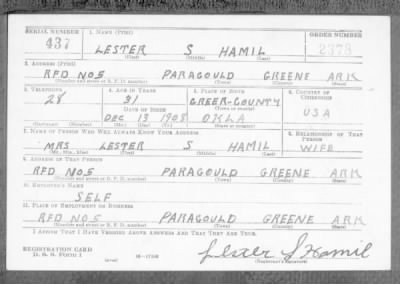 SERIAL NUMBER 1. NAME (Print) ORDER NUMBER
437 LESTER S HAMIL 2373
(First) (Middle) (Last)
2. ADDRESS (Print)
RFD NO5 PARAGOULD GREENE ARK
(Number and street or R. F. D. number) (Town) (County) (State)
3. TELEPHONE 4. AGE IN YEARS 5. PLACE OF BIRTH 6. COUNTRY OF CITIZENSHIP
28 31 GREER-COUNTY
DATE OF BIRTH (Town or county) USA
DEC 13 1908 OKLA
(Exchange) (Number) (Mo.) (Day) (Yr.) (State or country)
7. NAME OF PERSON WHO WILL ALWAYS KNOW YOUR ADDRESS 8. RELATIONSHIP OF THAT PERSON
MRS LESTER S HAMIL WIFE
(Mr., Mrs., Miss) (First) (Middle) (Last)
9. ADDRESS OF THAT PERSON
RFD NO5 PARAGOULD GREENE ARK
(Number and street or R. F. D. number) (Town) (County) (State)
10. EMPLOYER'S NAME
SELF
11. PLACE OF EMPLOYMENT OR BUSINESS
RFD NO5 PARAGOULD GREENE ARK
(Number and street or R. F. D. number) (Town) (County) (State)
I AFFIRM THAT I HAVE VERIFIED ABOVE ANSWERS AND THAT THEY ARE TRUE.
REGISTRATION CARD
D. S. S. FORM 1
(over) 16—17105
Lester S Hamil
(Registrant's signature)